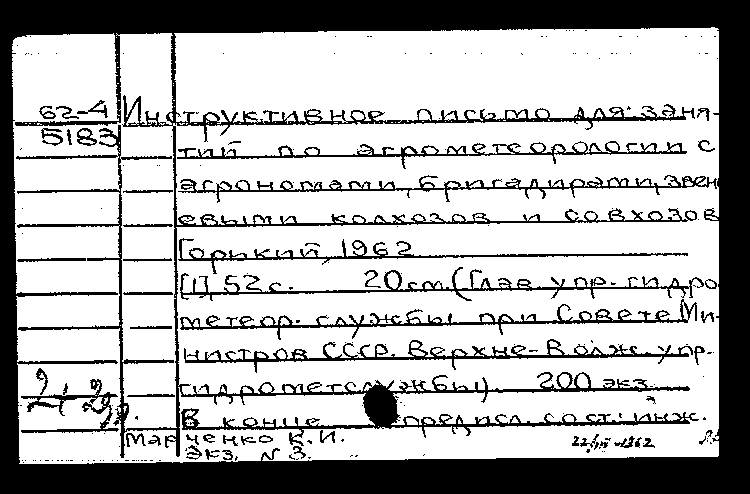 62-4 Инструктивное письмо для заня-
5183
тий по агрометеорологии с
агрономами, бригадирами, звен
евыми колхозов и совхозов
Горький, 1962
[1], 52 с. 20 см. (Глав упр. гидро
метеор. службы при Совете Ми-
нистров СССР. Верхне-Волж. упр.
гидрометслужбы). 200 экз.
В конце предисл. сост.: инж.
Марченко К. И.
Экз. N 3.
22/III-1962